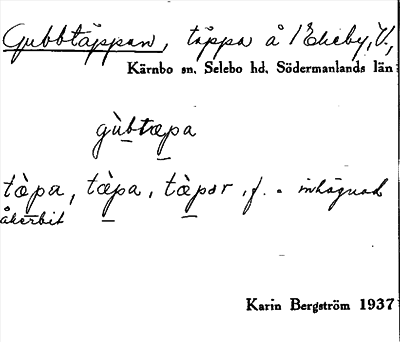 Gubbtäppan, täppa å 1 Ekeby, V.,
Kärnbo sn, Selebo hd, Södermanlands län
gùbtæpa
tæ̀pa, tæ̀pa, tæ̀pər, f. = inhägnad
åkerbit
Karin Bergström 1937